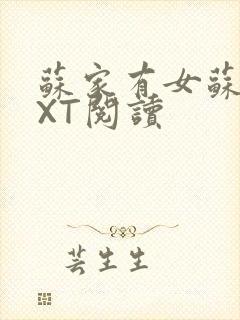 蘇家有女蘇
XT閱讀
芸生生